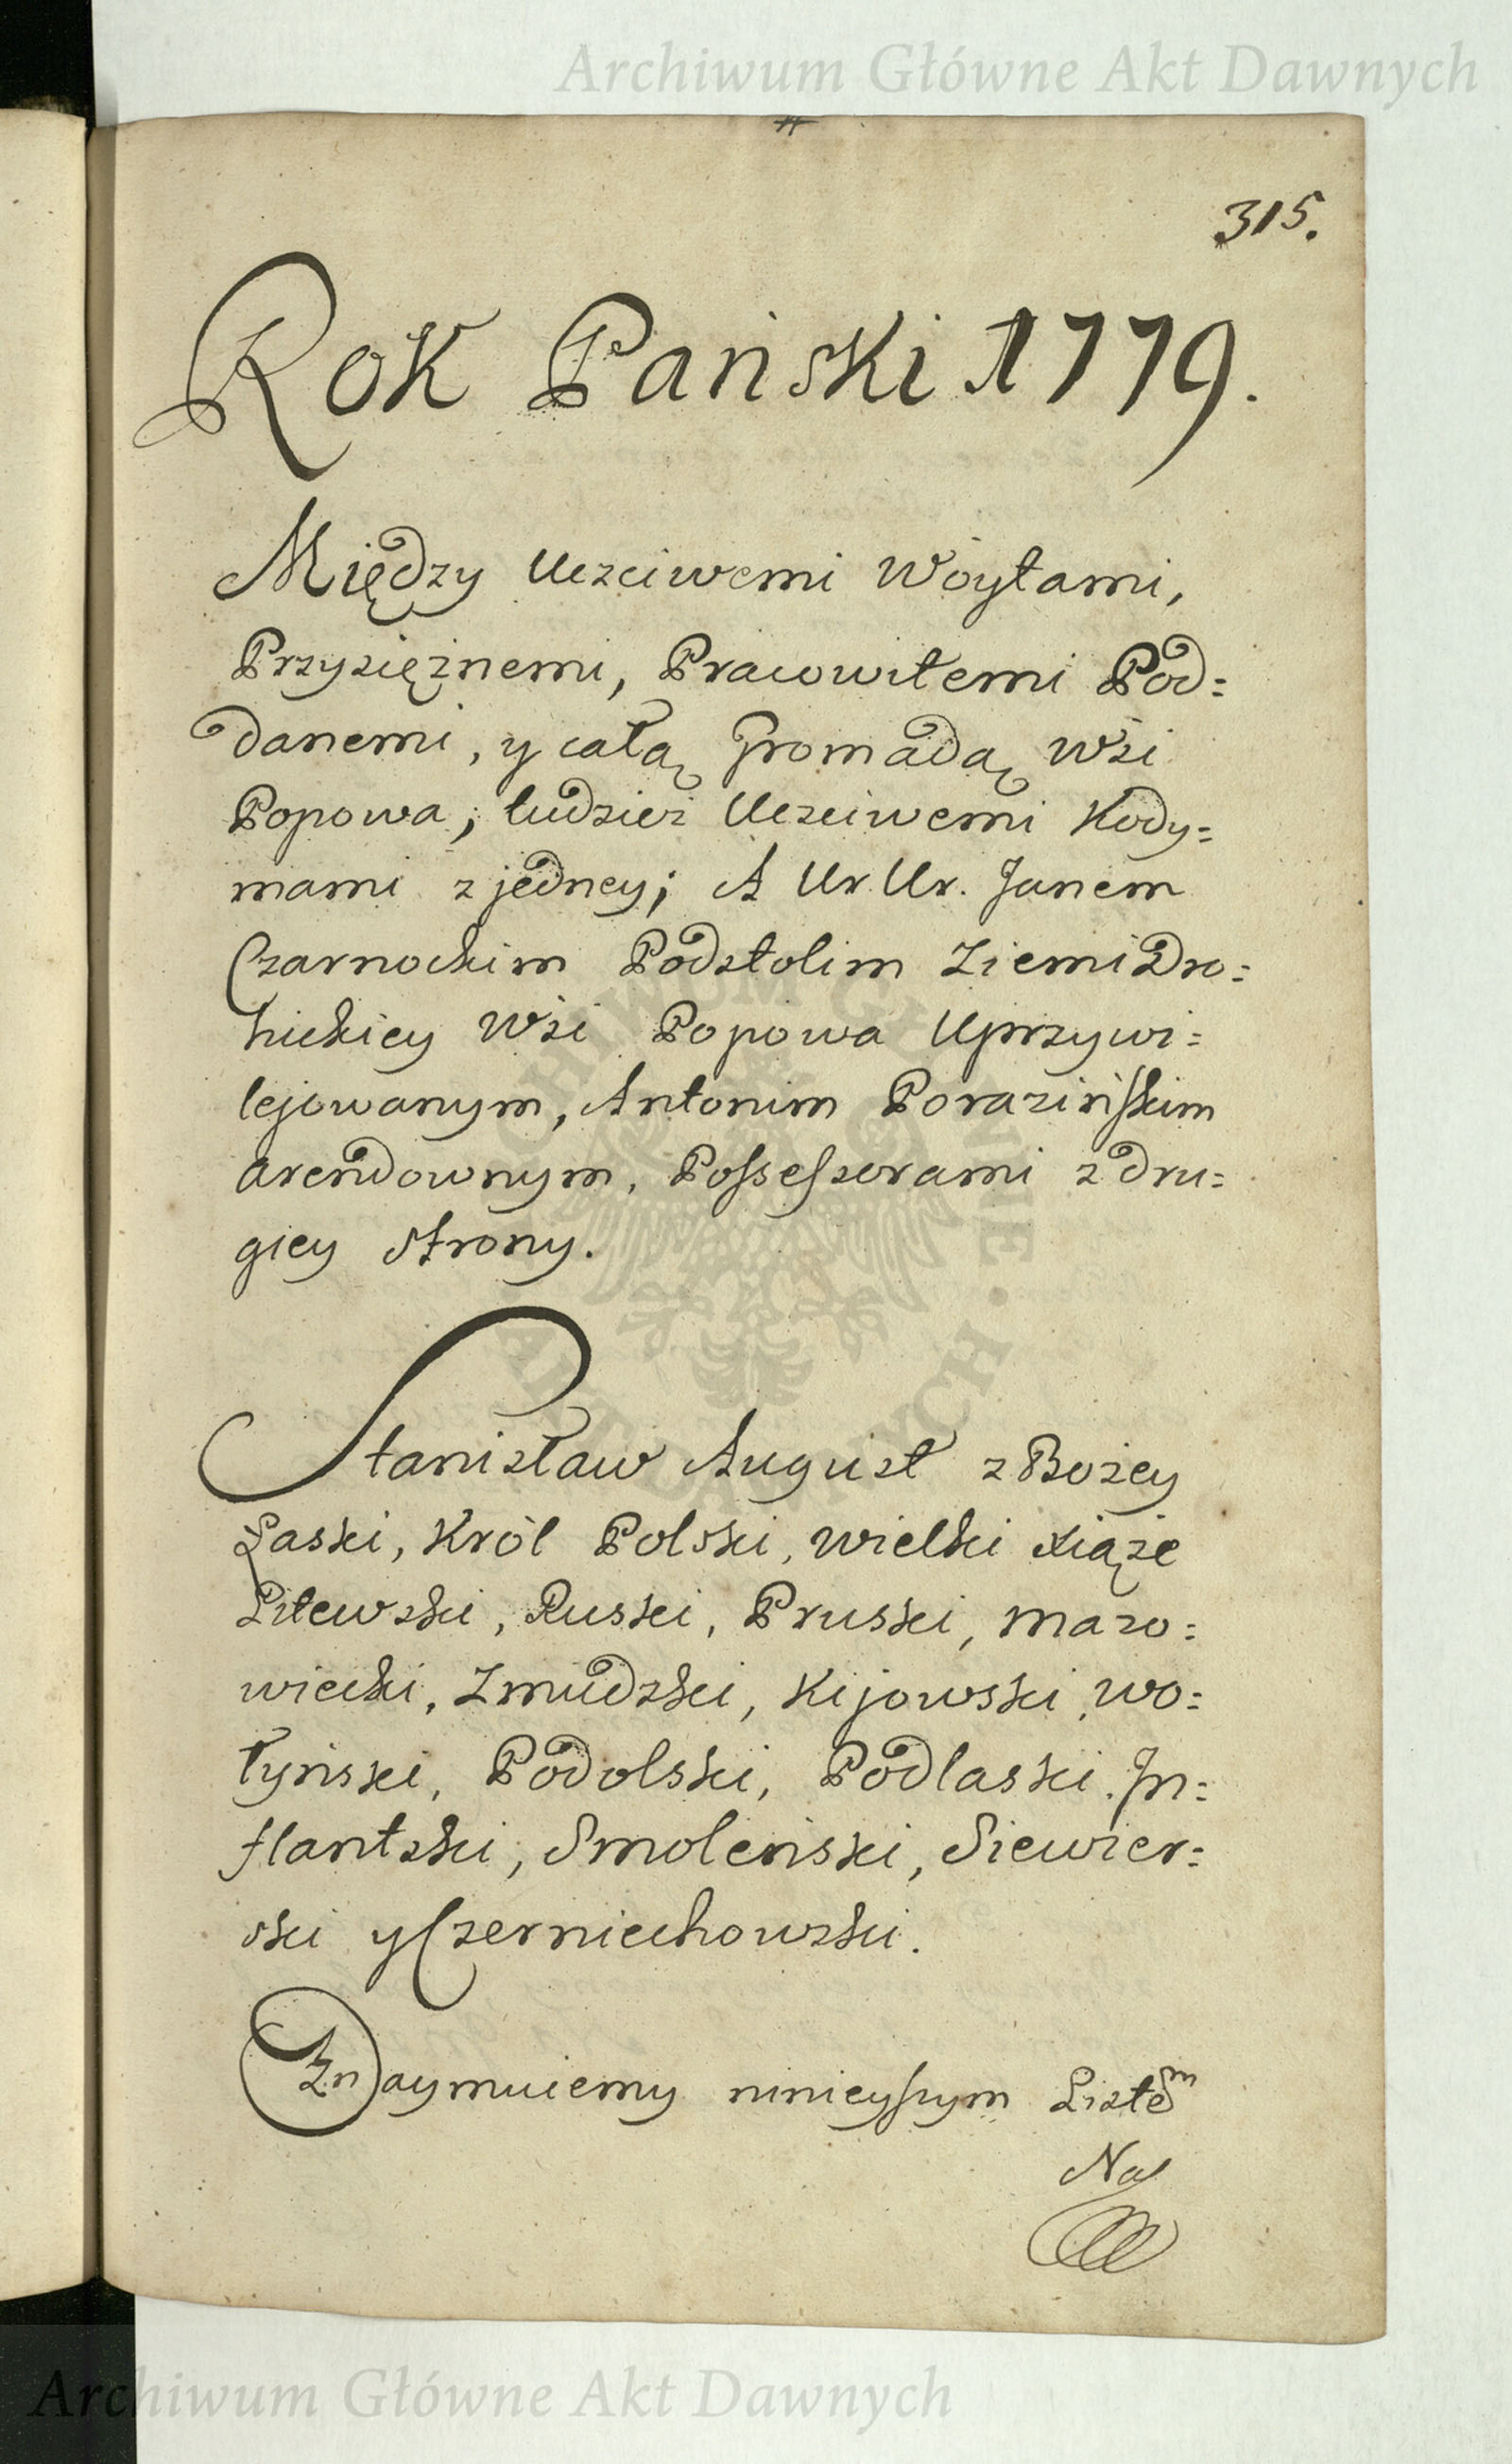 Archiwum Główne Akt Dawnych
315.
Rok Pański 1779.
Między Uczciwemi Woytami,
Przysiężnemi, Pracowitemi Pod=
danemi, y całą Gromadą Wsi
Popowa, tudzież Uczciwemi Kody=
mami z jedney; A Ur. Ur. Janem
Czarnockim Podstolim Ziemi Dro=
hickiey Wsi Popowa Uprzywi=
lejowanym, Antonim Porazińskim
arendownym, Possessorami z dru=
giey strony.
Stanisław August z Bożey
Łaski, Król Polski, Wielki Xiąże
Litewski, Ruski, Pruski, Mazo=
wiecki, Zmudzki, Kijowski, Wo=
łyński, Podolski, Podlaski, In=
flantski, Smoleński, Siewier=
ski y Czerniechowski.
Znaymuiemy ninieyszym Listem
Na
ARCHIWUM GŁÓWNE AKT DAWNYCH
Archiwum Główne Akt Dawnych